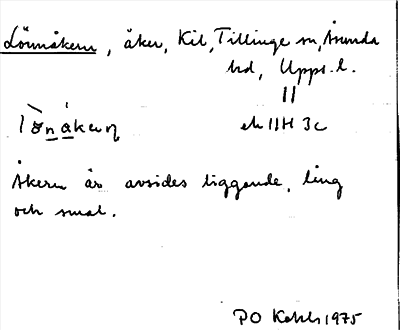 Lönnåkern, åker, Kil, Tillinge sn, Åsunda
hd, Upps. l.
ek 11H 3c
Åkern är avsides liggande, lång
och smal.
1975